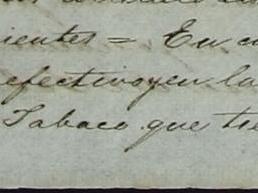 ientes = En c
efectivo y en la
Tabaco que tie